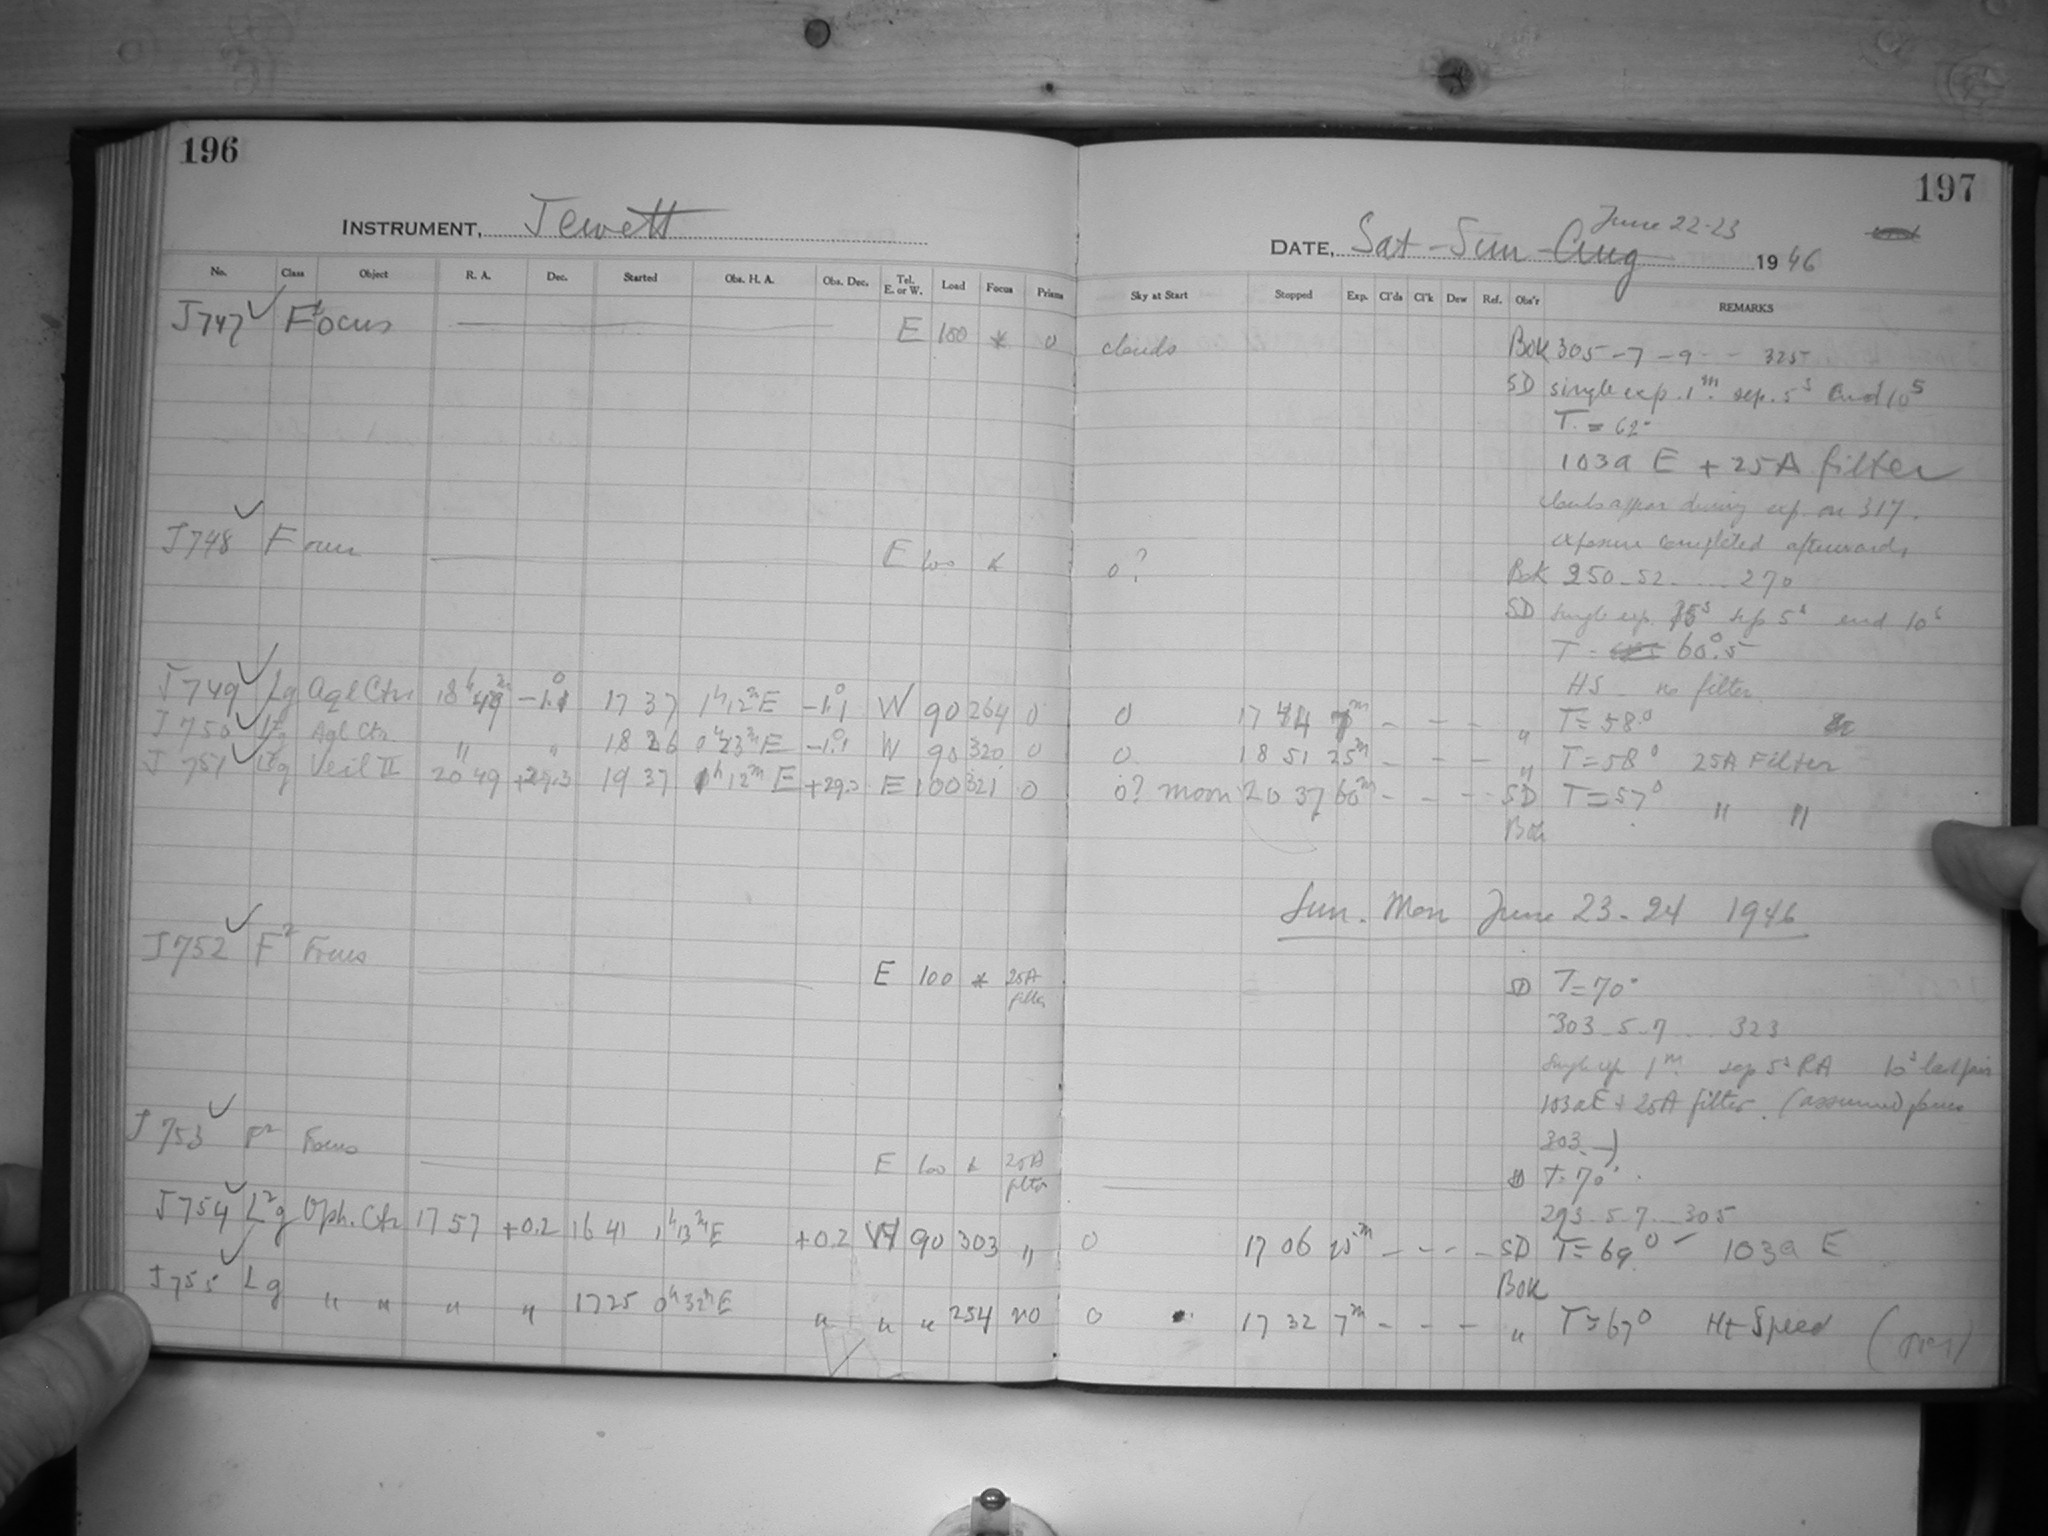 196
197
INSTRUMENT, Jewett
June 22-23
DATE, Sat-Sun Aug 1946
No. Class Object R. A. Dec. Started Obs. H. A. Obs. Dec. Tel. E. or W. Load Focus Prisms Sky at Start Stopped Exp. Cl'ds Cl'k Dew Ref. Obs'r REMARKS
J747 F Focus E 100 * 0 clouds Bok 305-7-9-- 325
SD single exp. 1m. sep. 5s end 10s
T. = 62°
103a E + 25A filter
clouds appear during exp. on 317.
exposure completed afterwards
J748 F Focus E 100 * 0? Bok 250-52.....270
SD single exp. sep 5s end 10s
T = 60°.5
HS - no filter
J749 Lg Aql Ctr 18h 49m -1.1 17 37 1h12mE -1°.1 W 90 264 0 0 17 44 7m - - - " T=58°
J750 Lg Aql Ctr " " 18 26 0h23mE -1°.1 W 90 320 0 0 18 51 25m - - - " T=58° 25A Filter
J751 Lg Veil II 20 49 +29.3 19 37 1h12mE +29.3 E 100 321 0 0? moon 20 37 60m - - - SD T=57° " "
Bok
Sun. Mon June 23-24 1946
J752 F2 Focus E 100 * 25A filter SD T=70°
303-5-7....323
Single exp 1m sep 5s RA 10s last pair
103aE + 25A filter. (assumed focus
303-)
J753 F2 Focus E 100 * 25A filter SD T=70°
293-5-7....305
J754 L2g Oph. Ctr 17 57 +0.2 16 41 1h13mE +0.2 W 90 303 " 0 17 06 25m - - - SD T=69° - 103a E
Bok
J755 Lg " " " " 17 25 0h32mE " " " 254 no 0 17 32 7m - - - " T=67° Ht Speed